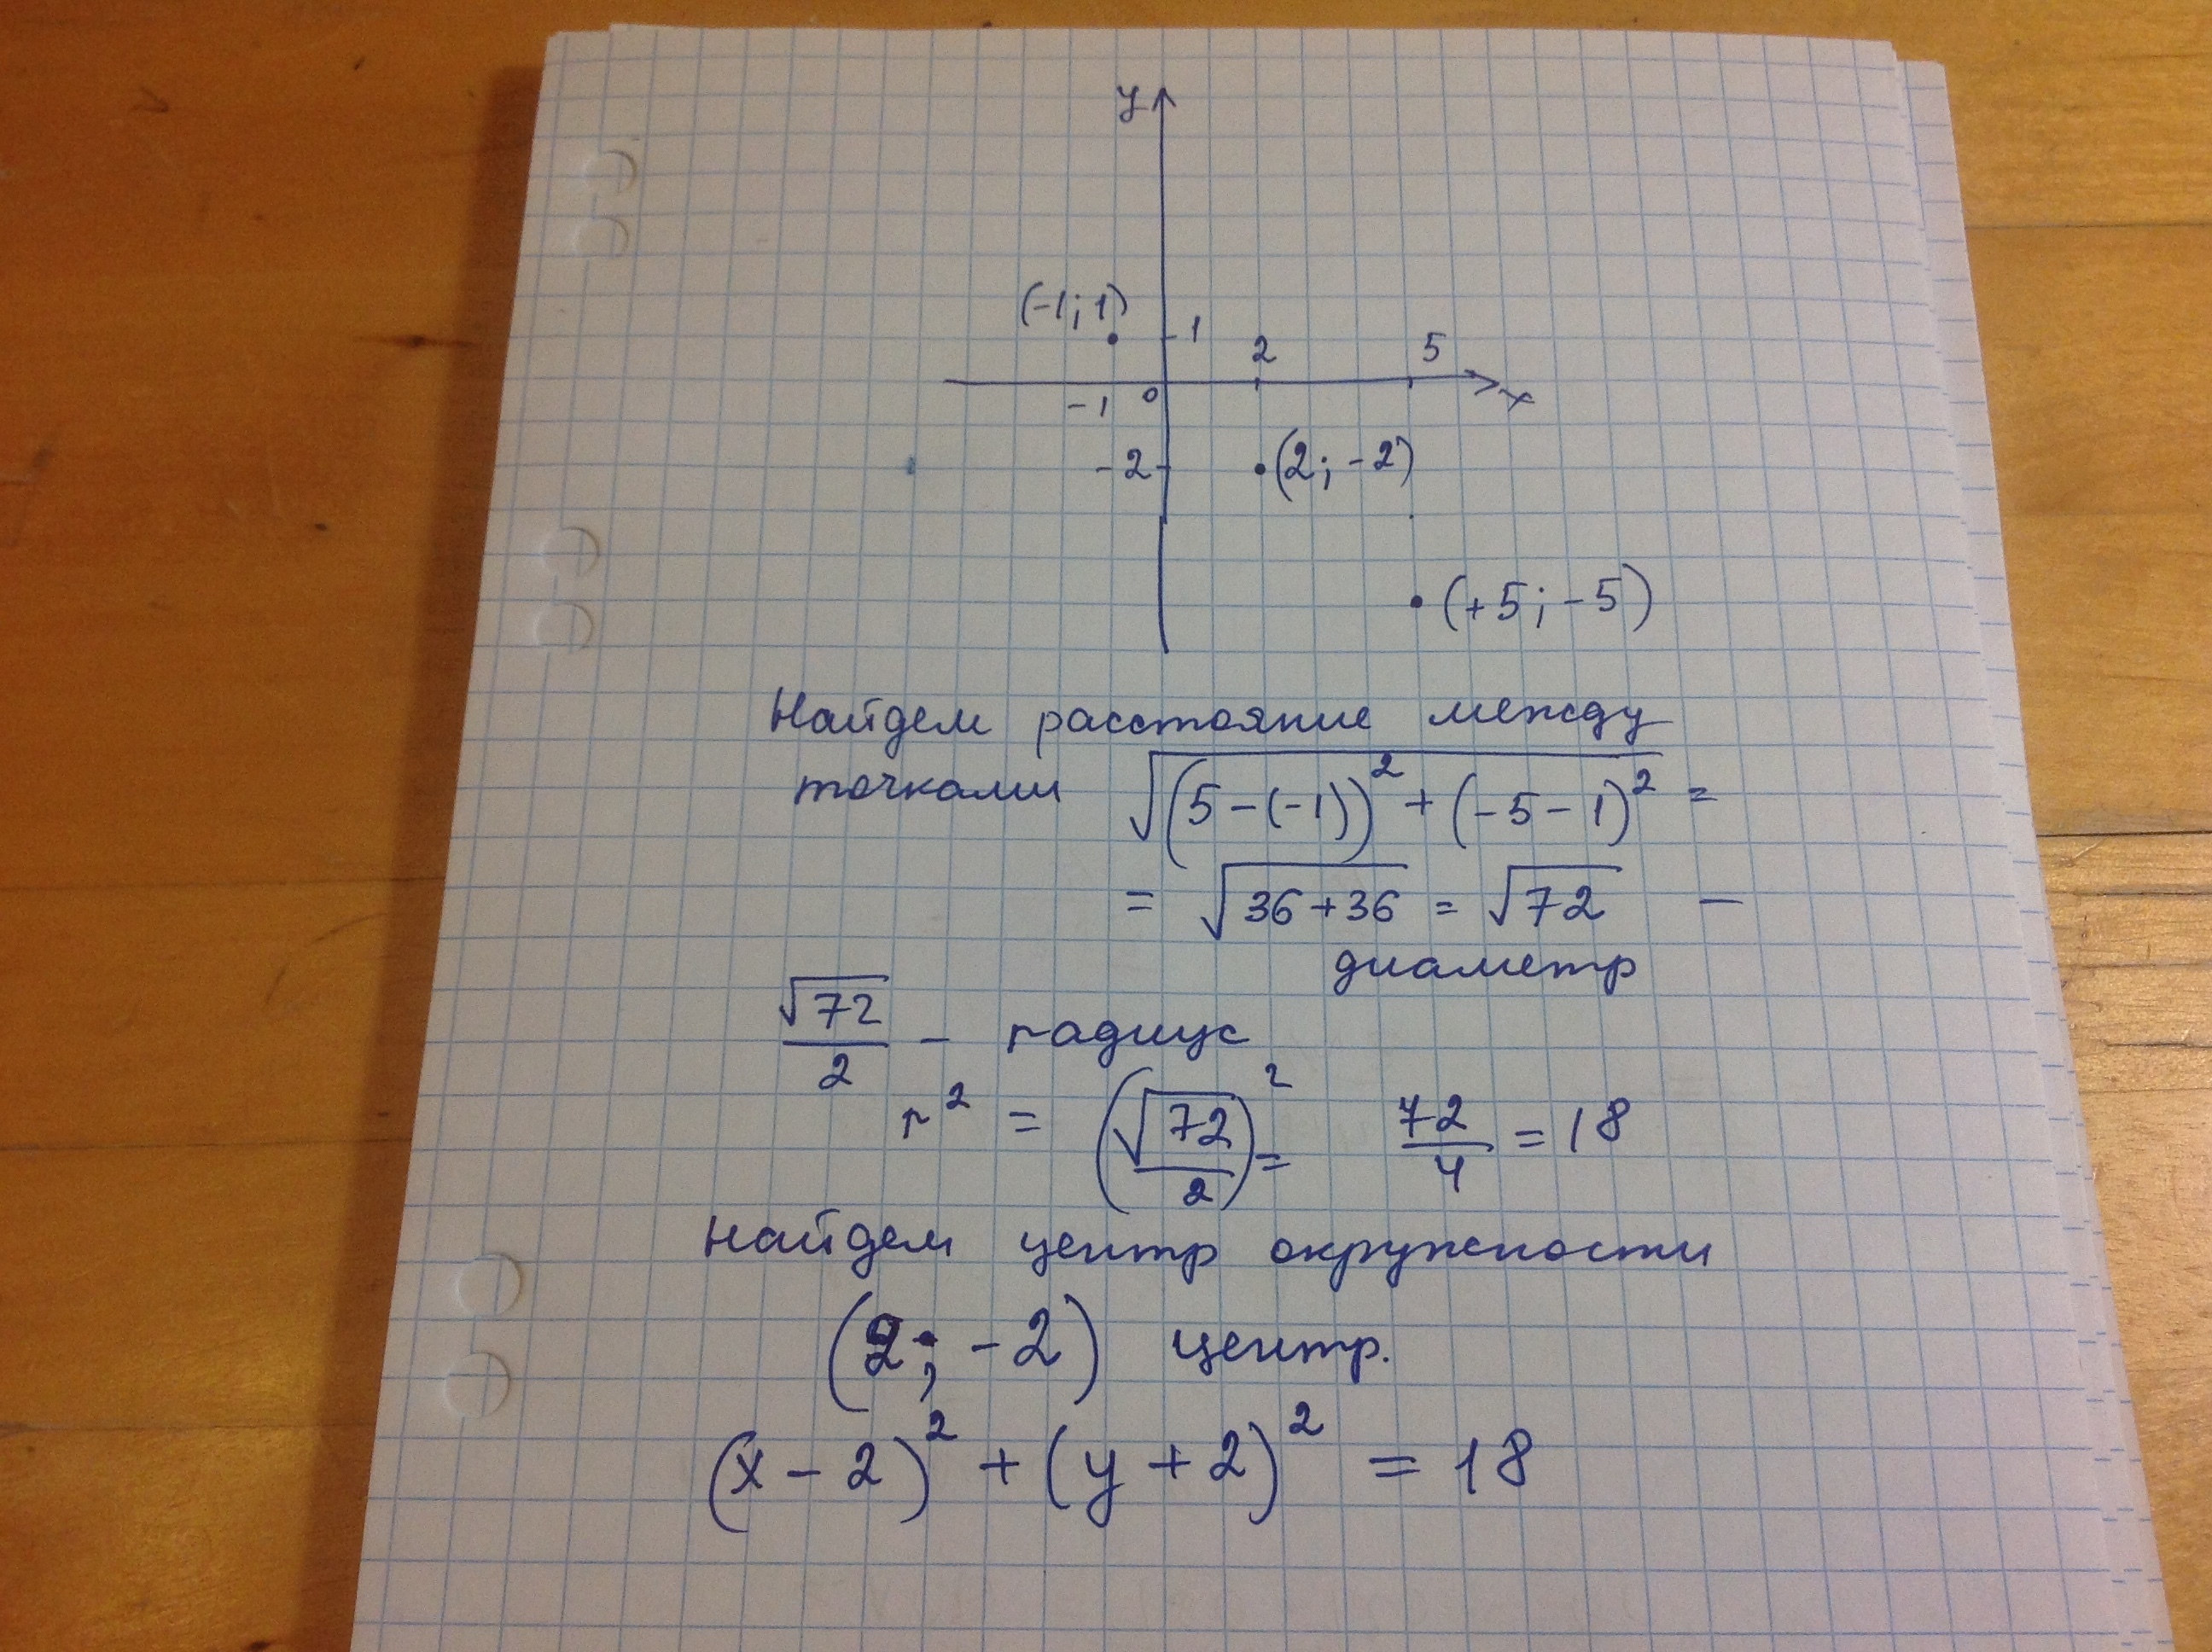 y
(-1; 1)
1
2
5
-1
0
x
-2
(2; -2)
(+5; -5)
Найдем расстояние между
точками √((5-(-1))² + (-5-1)²) =
= √(36+36) = √72 –
диаметр
√72/2 - радиус
r² = (√72/2)² = 72/4 = 18
Найдем центр окружности
(2; -2) центр.
(x-2)² + (y+2)² = 18